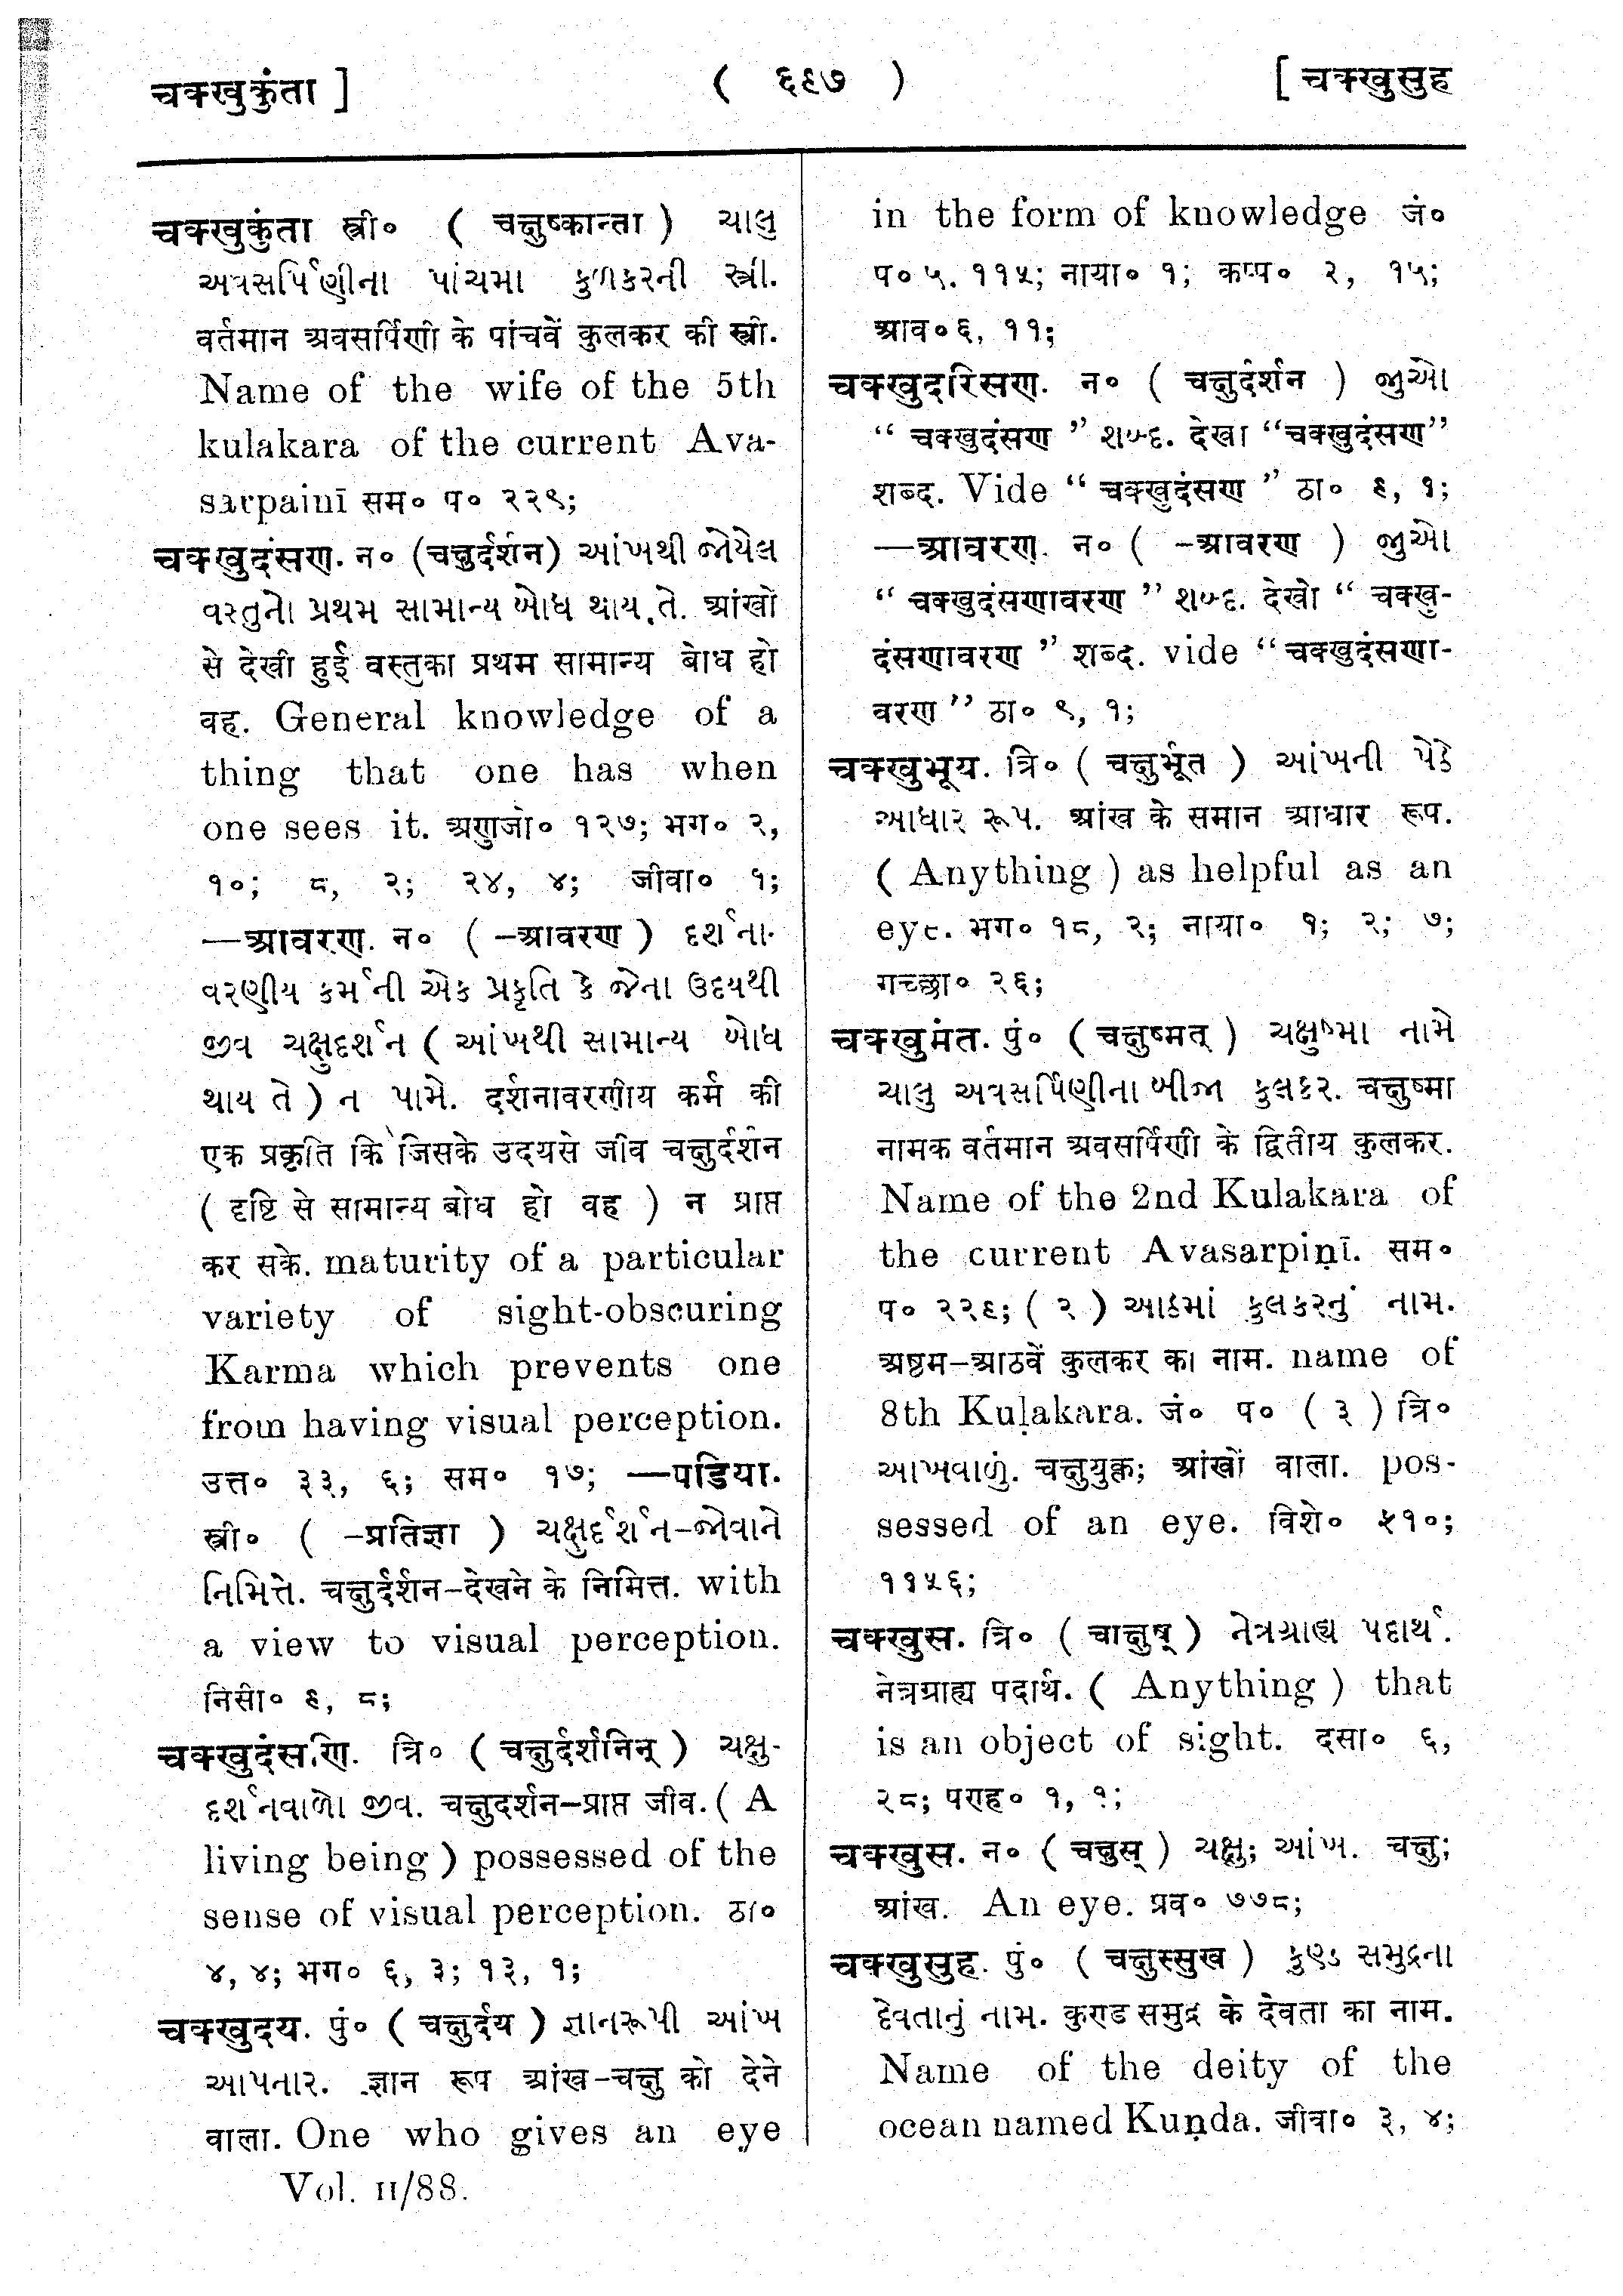 चक्खुकुंता ]
( ६९७ )
[ चक्खुसुह
चक्खुकुंता स्त्री० ( चक्षुष्कान्ता ) ચાલુ
અવસર્પિણીના પાંચમા કુળકરની સ્ત્રી.
वर्तमान अवसर्पिणी के पांचवें कुलकर की स्त्री.
Name of the wife of the 5th
kulakara of the current Ava-
sarpainī सम० प० २२९;
चक्खुदंसण. न० (चक्षुर्दर्शन) આંખથી જોયેલ
વસ્તુનો પ્રથમ સામાન્ય બોધ થાય તે. आंखों
से देखी हुई वस्तुका प्रथम सामान्य बोध हो
वह. General knowledge of a
thing that one has when
one sees it. अणुजो० १२७; भग० २,
१०; ८, २; २४, ४; जीवा० १;
—आवरण. न० ( -आवरण ) દર્શના-
વરણીય કર્મની એક પ્રકૃતિ કે જેના ઉદયથી
જીવ ચક્ષુદર્શન ( આંખથી સામાન્ય બોધ
થાય તે ) ન પામે. दर्शनावरणीय कर्म की
एक प्रकृति कि जिसके उदयसे जीव चक्षुर्दर्शन
( दृष्टि से सामान्य बोध हो वह ) न प्राप्त
कर सके. maturity of a particular
variety of sight-obscuring
Karma which prevents one
from having visual perception.
उत्त० ३३, ६; सम० १७; —पडिया.
स्त्री० ( -प्रतिज्ञा ) ચક્ષુર્દર્શન-જોવાને
નિમિત્તે. चक्षुर्दर्शन-देखने के निमित्त. with
a view to visual perception.
निसी० ९, ८;
चक्खुदंसणि. त्रि० ( चक्षुर्दर्शनिन् ) ચક્ષુ-
દર્શનવાળો જીવ. चक्षुदर्शन-प्राप्त जीव. ( A
living being ) possessed of the
sense of visual perception. ठा०
४, ४; भग० ६, ३; १३, १;
चक्खुदय. पुं० ( चक्षुर्दय ) જ્ઞાનરૂપી આંખ
આપનાર. ज्ञान रूप आंख-चक्षु को देने
वाला. One who gives an eye
Vol. II/88.
in the form of knowledge जं०
प० ५. ११५; नाया० १; कप्प० २, १५;
आव० ६, ११;
चक्खुदरिसण. न० ( चक्षुर्दर्शन ) જુઓ
“ चक्खुदंसण ” શબ્દ. देखो “चक्खुदंसण”
शब्द. Vide “ चक्खुदंसण ” ठा० ९, १;
—आवरण. न० ( -आवरण ) જુઓ
“ चक्खुदंसणावरण ” શબ્દ. देखो “ चक्खु-
दंसणावरण ” शब्द. vide “चक्खुदंसणा-
वरण ” ठा० ९, १;
चक्खुभूय. त्रि० ( चक्षुर्भूत ) આંખની પેઠે
આધાર રૂપ. आंख के समान आधार रूप.
( Anything ) as helpful as an
eye. भग० १८, २; नाया० १; २; ७;
गच्छा० २६;
चक्खुमंत. पुं० ( चक्षुष्मत् ) ચક્ષુષ્મા નામે
ચાલુ અવસર્પિણીના બીજા કુલકર. चक्षुष्मा
नामक वर्तमान अवसर्पिणी के द्वितीय कुलकर.
Name of the 2nd Kulakara of
the current Avasarpiṇī. सम०
प० २२९; ( २ ) આઠમાં કુલકરનું નામ.
अष्ठम-आठवें कुलकर का नाम. name of
8th Kuḷakara. जं० प० ( ३ ) त्रि०
આખવાળું. चक्षुयुक्त; आंखों वाला. pos-
sessed of an eye. विशे० ५१०;
११५६;
चक्खुस. त्रि० ( चाक्षुष् ) નેત્રગ્રાહ્ય પદાર્થ.
नेत्रग्राह्य पदार्थ. ( Anything ) that
is an object of sight. दसा० ६,
२८; पण्ह० १, १;
चक्खुस. न० ( चक्षुस् ) ચક્ષુ; આંખ. चक्षु;
आंख. An eye. प्रव० ७७८;
चक्खुसुह. पुं० ( चक्षुस्सुख ) કુણ્ડ સમુદ્રના
દેવતાનું નામ. कुण्ड समुद्र के देवता का नाम.
Name of the deity of the
ocean named Kuṇda. जीवा० ३, ४;